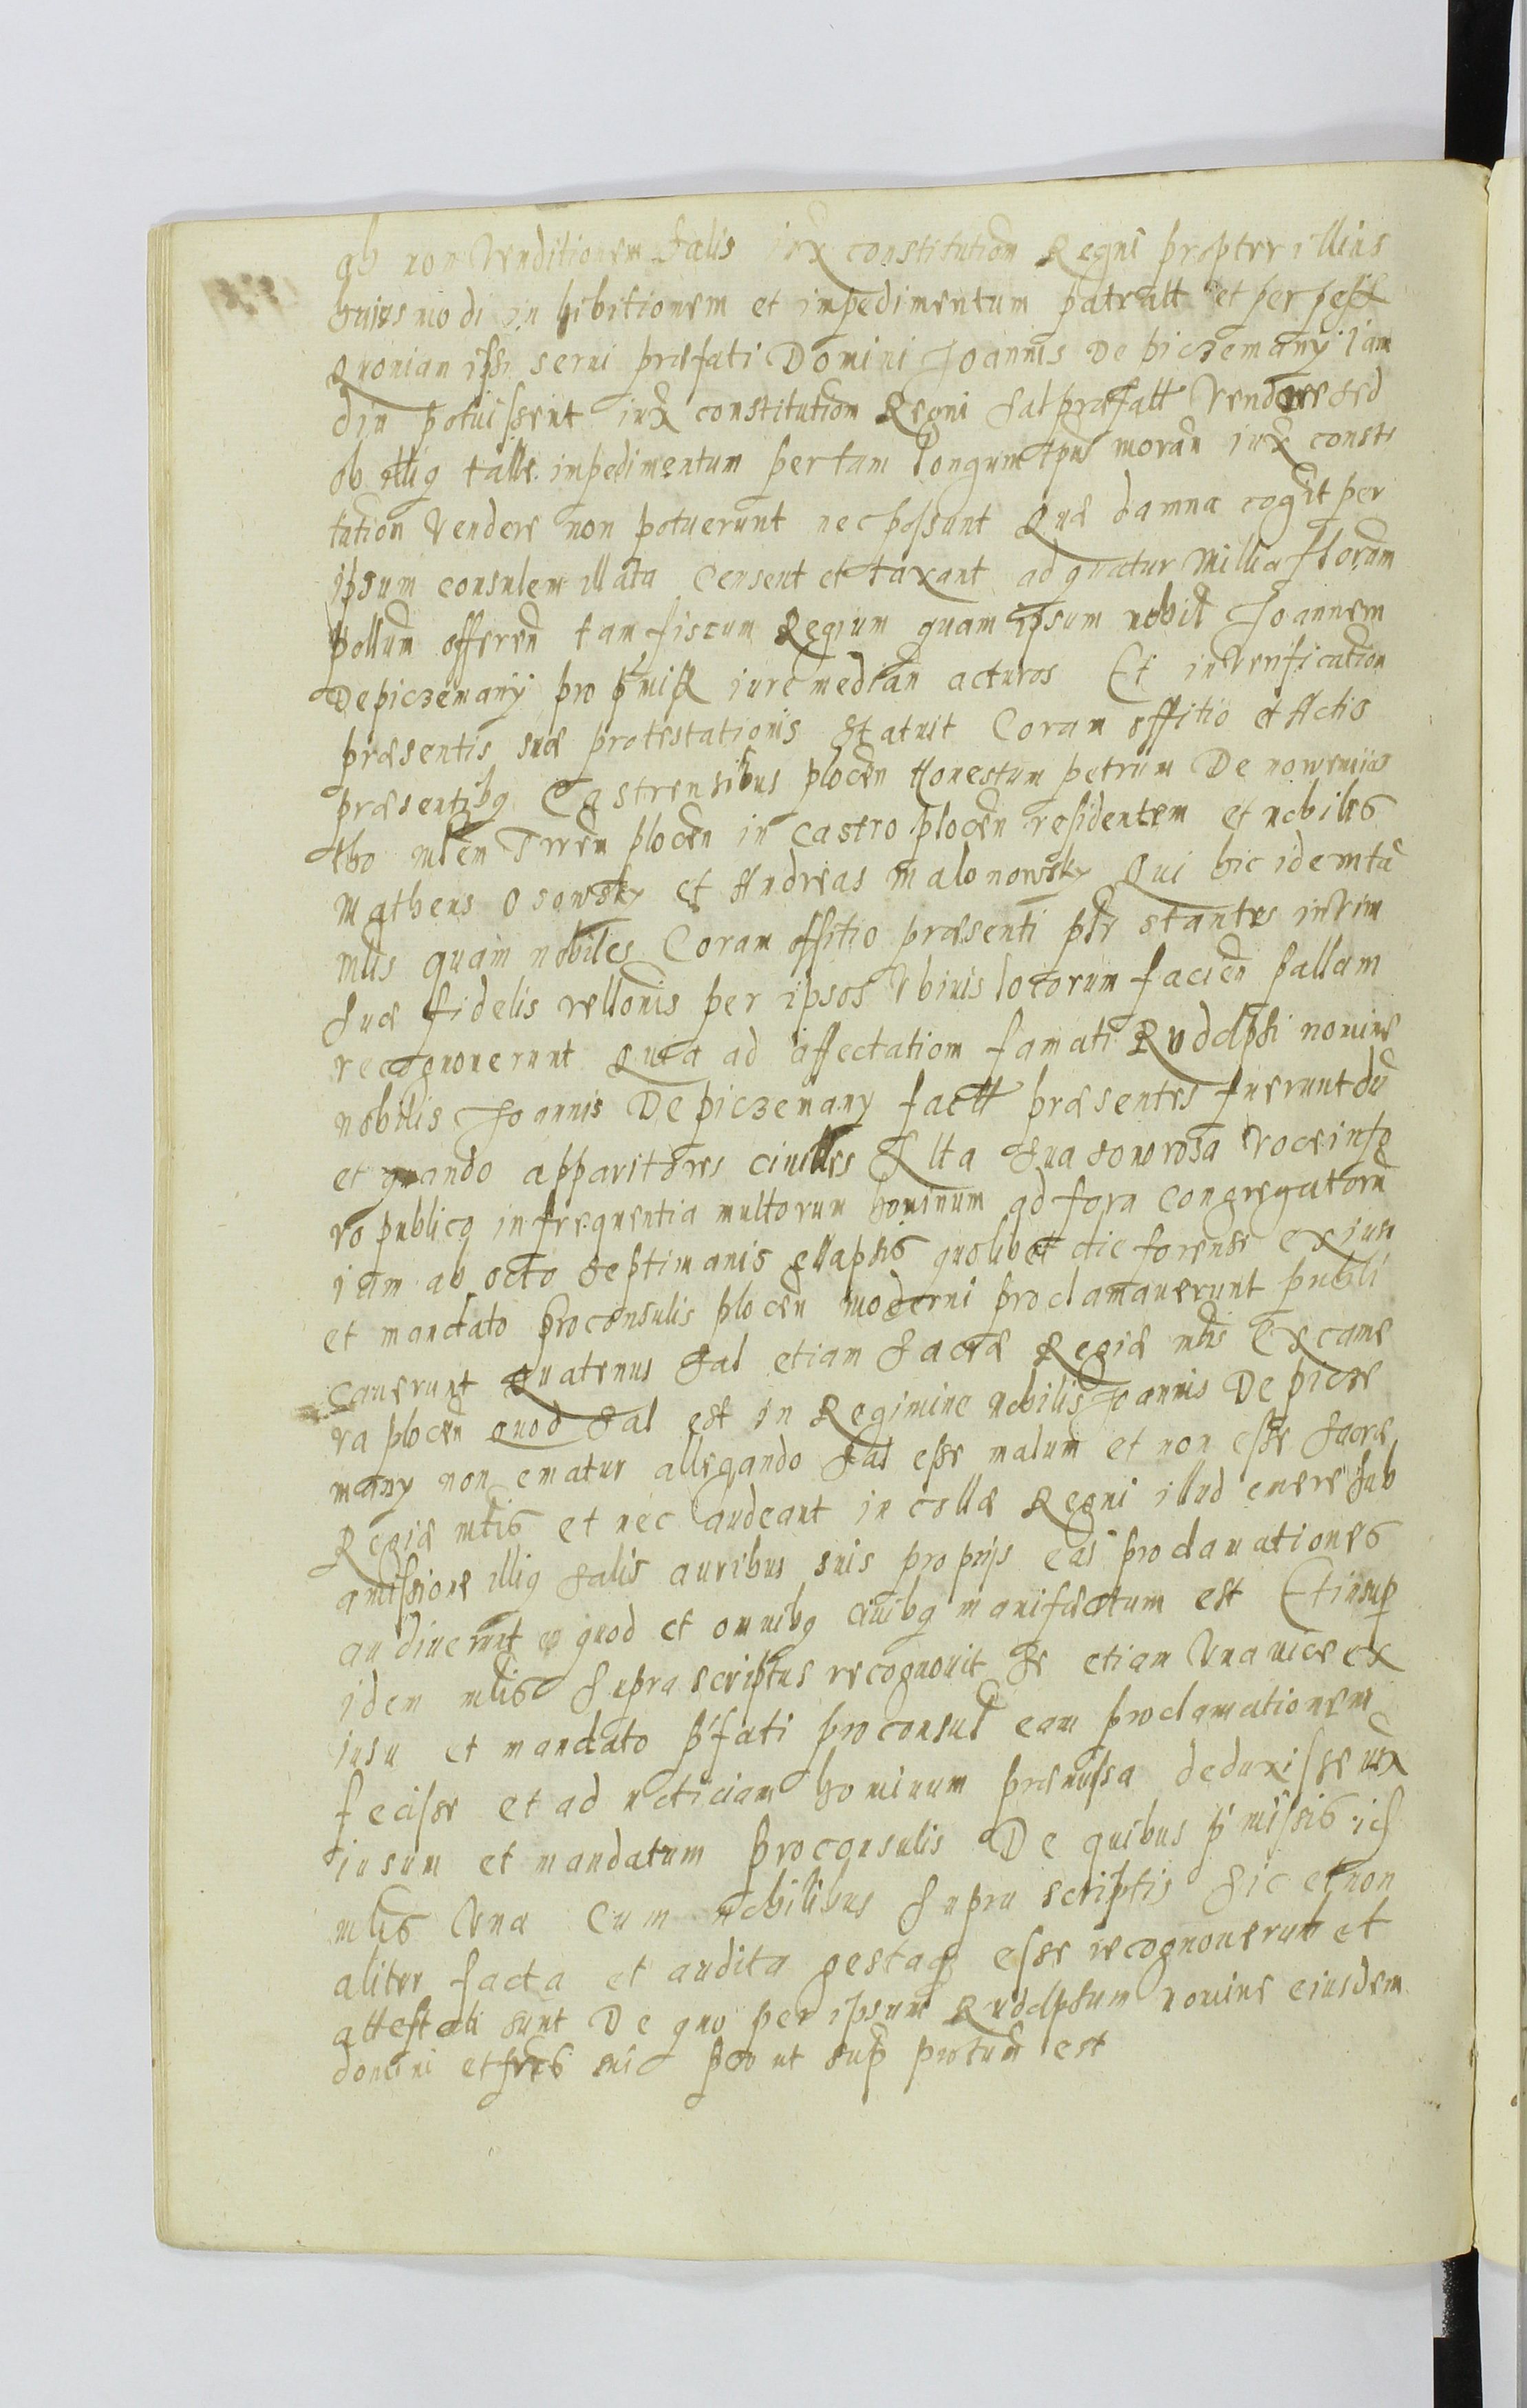 ab non Venditionem Salis iux constitution Regni propter illius
huiusmodi inhibitionem et impedimentum patratt et per pess
Quoniam ipsi serui præfati Domini Joannis De piczemany iam
diu potuissent iux constitution Regni sal præfatt Vendere sed
ob illiq talle impedimentum per tam longum tps moran iux consti
tution Vendere non potuerunt nec possunt Quæ damna cogit per
ipsum consulem illata Censent et taxant ad quatur Millia floram
pollum offeren tam fiscum Regium quam ipsum nobil Joannem
De piczemany pro pmiss iure median acturos Et in Verification
præsentis suæ protestationis Statuit Coram offitio et Actis
præsentibq Castrensibus plocen Honestum petrum De nowemias
tho mlem Trrem plocen in Castro plocen residentem et nobiles
Matheus Osowsky et Andreas Malonowsky Qui hic idem tã
mlis quam nobiles Coram offitio præsenti plr stantes in Vim
suæ fidelis rellonis per ipsos Vbiuis locorum facien pallam
recognouerunt Quia ad affectatiom famati Rudolphi nomine
nobilis Joannis De piczemany factt præsentes fuerunt dũ
et quando apparitores ciuilles Alta sua sonorosa Voce in fo
ro publico in frequentia multorum hominum ad fora Congregatorũ
iam ab octo septimanis ellapsis quolibet die forense ex iusu
et mandato proconsulis plocen moderni proclamauerunt publi
cauerunt Quatenus Sal etiam Sacræ Regiæ mtis Ex came
ra plocen quod Sal est in Regimine nobilis Joannis De picze
many non ematur allegando Sal esse malum et non esse Sacræ
Regiæ mtis et nec audeant in collæ Regni illud emere sub
amissione illiq Salis auribus suis proprijs eas proclamationes
audiuerunt quod et omnibq ciuibq manifæstum est Et insup
idem mlis supra scriptus recognouit se etiam Vna vice ex
iusu et mandato pfati proconsul eam proclamationem
fecisse et ad noticiam hominum præmissa deduxisse iux
iusum et mandatum proconsulis De quibus pmissis id
mlis Vna Cum nobilibus supra scriptis sic et non
aliter facta et audita gestaq esse recognouerunt et
attestati sunt De quo per ipsum Rudolphum nomine eiusdem
domini et fris sui pro ut sup protum est